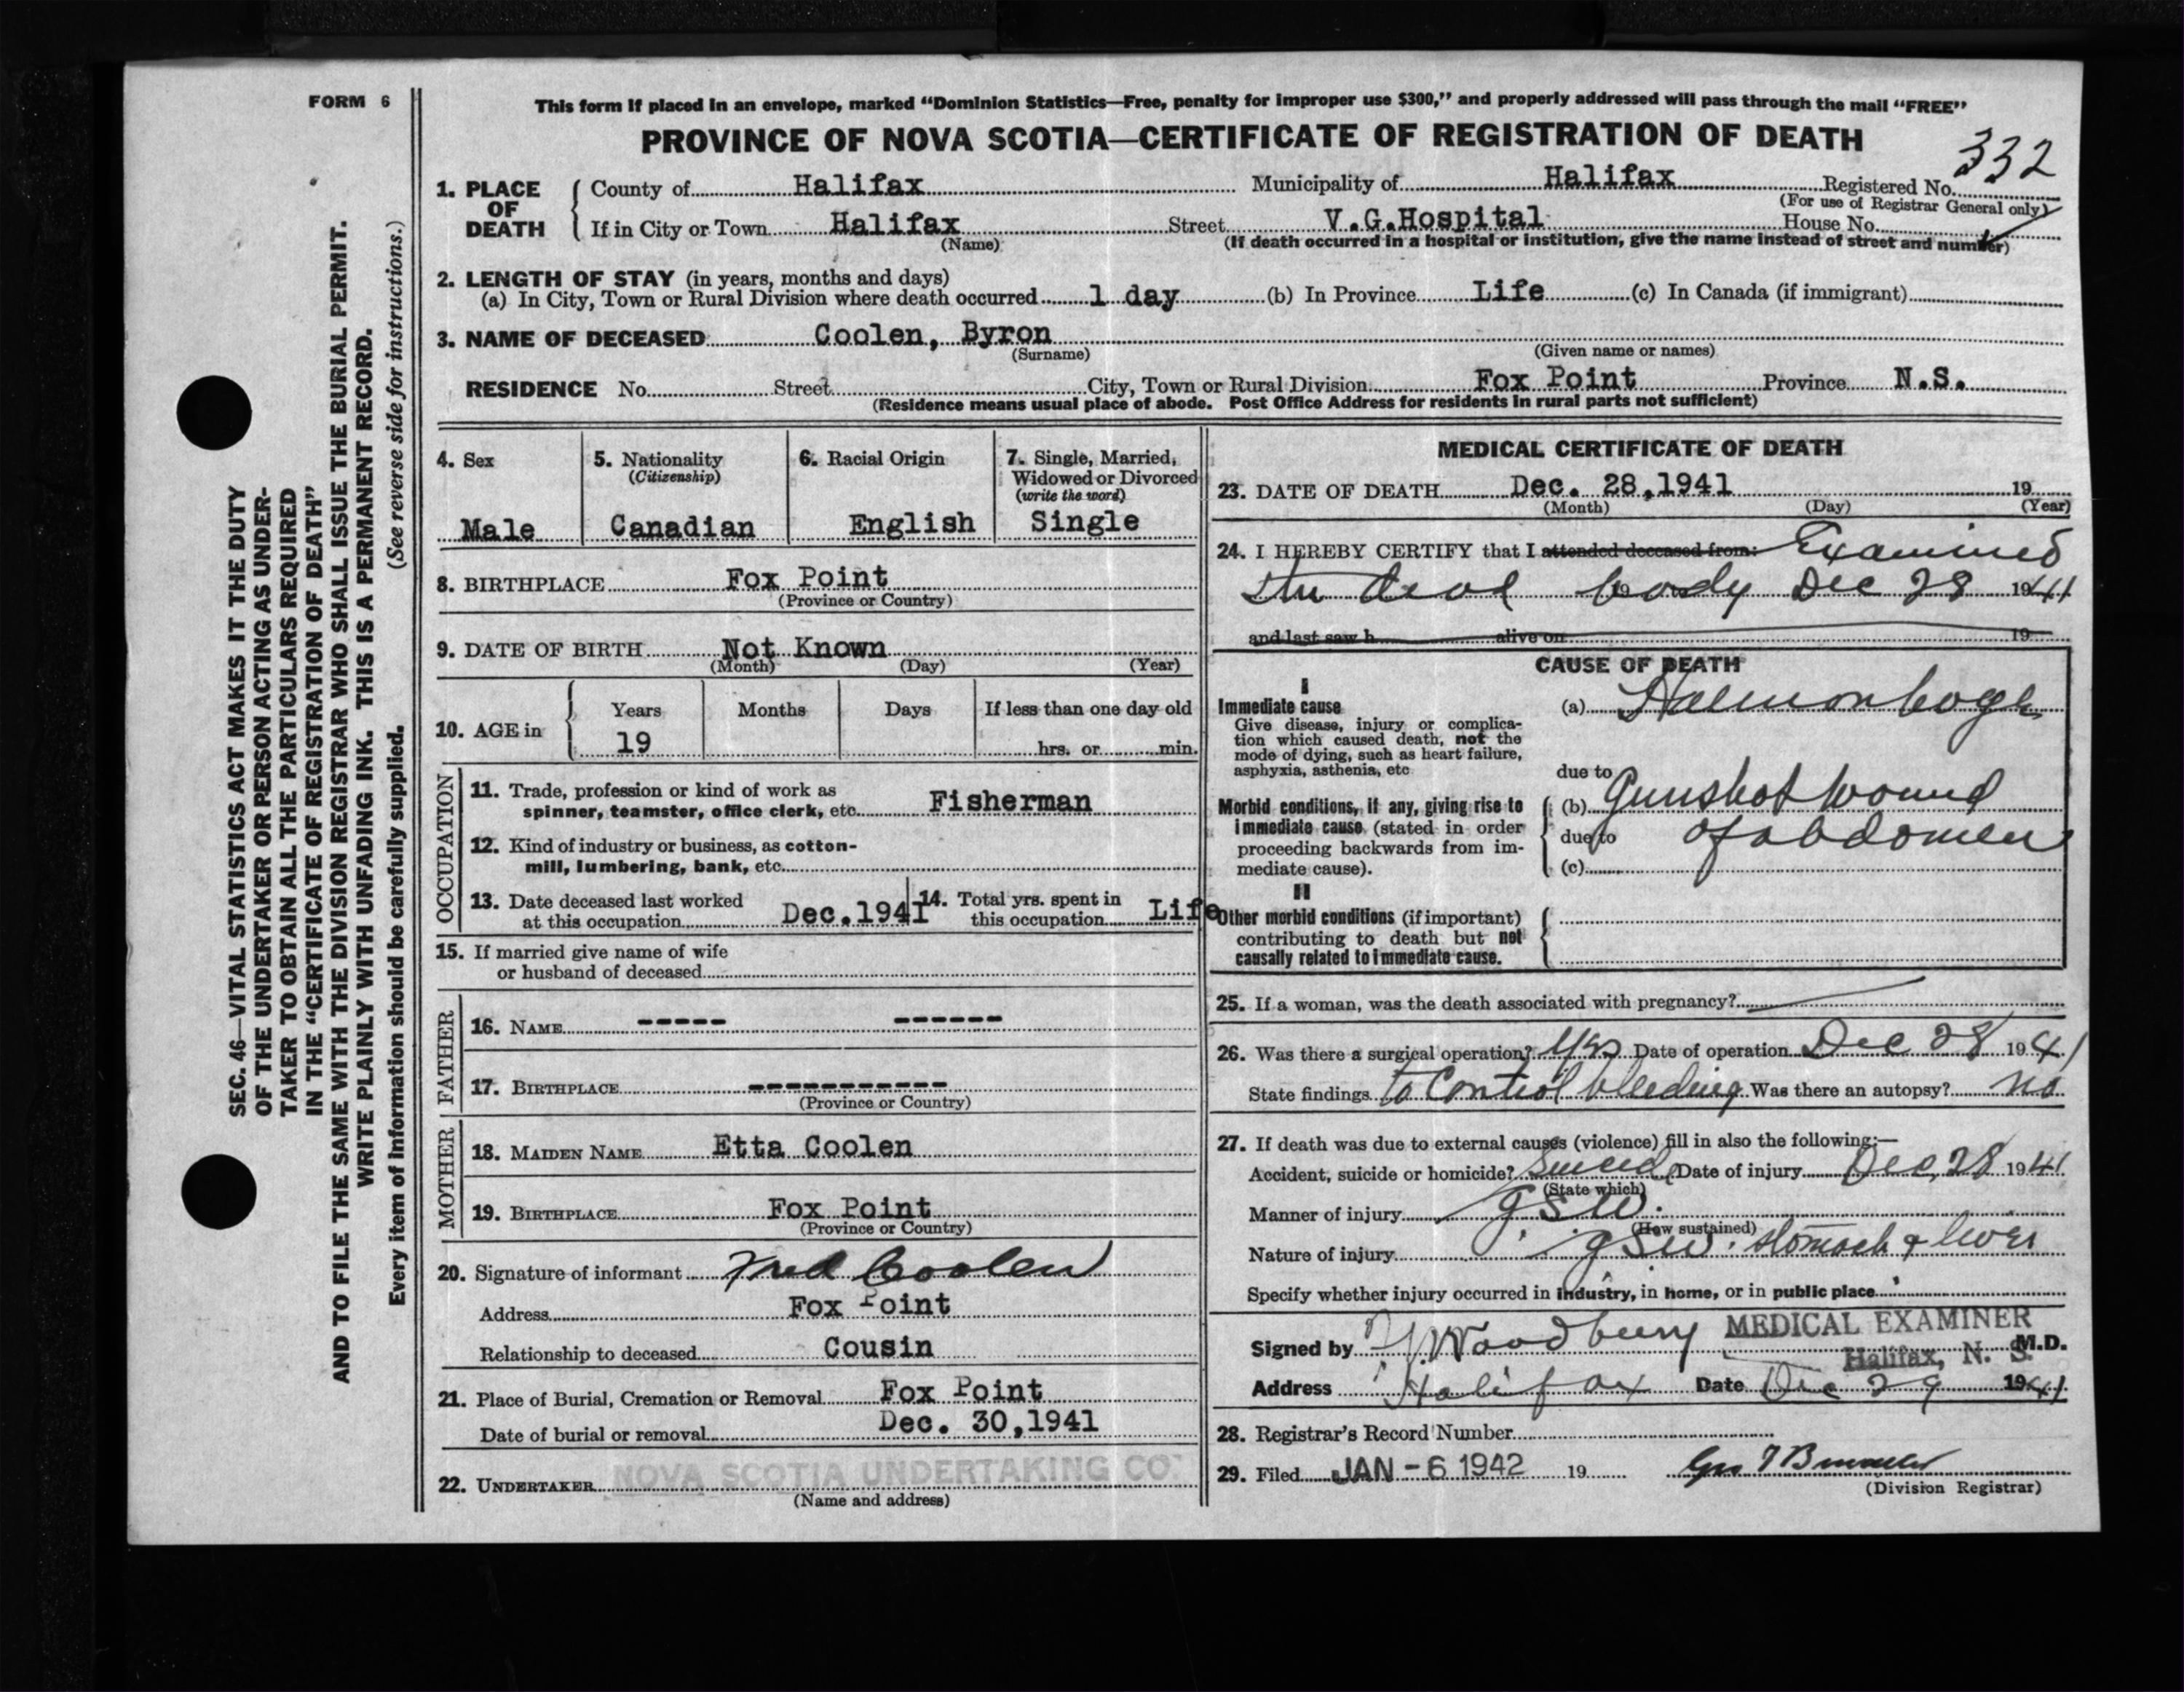 FORM 6
This form if placed in an envelope, marked "Dominion Statistics—Free, penalty for improper use $300," and properly addressed will pass through the mail "FREE"
PROVINCE OF NOVA SCOTIA—CERTIFICATE OF REGISTRATION OF DEATH
332
1. PLACE OF DEATH
County of Halifax Municipality of Halifax Registered No.
(For use of Registrar General only)
If in City or Town Halifax Street V.G.Hospital House No.
(Name) (If death occurred in a hospital or institution, give the name instead of street and number)
2. LENGTH OF STAY (in years, months and days)
(a) In City, Town or Rural Division where death occurred 1 day (b) In Province Life (c) In Canada (if immigrant)
3. NAME OF DECEASED Coolen, Byron
(Surname) (Given name or names)
RESIDENCE No. Street City, Town or Rural Division Fox Point Province N.S.
(Residence means usual place of abode. Post Office Address for residents in rural parts not sufficient)
4. Sex
Male
5. Nationality
(Citizenship)
Canadian
6. Racial Origin
English
7. Single, Married,
Widowed or Divorced
(write the word)
Single
8. BIRTHPLACE Fox Point
(Province or Country)
9. DATE OF BIRTH Not Known
(Month) (Day) (Year)
10. AGE in
Years Months Days If less than one day old
19 hrs. or min.
OCCUPATION
11. Trade, profession or kind of work as
spinner, teamster, office clerk, etc. Fisherman
12. Kind of industry or business, as cotton-
mill, lumbering, bank, etc.
13. Date deceased last worked
at this occupation Dec.1941
14. Total yrs. spent in
this occupation Life
15. If married give name of wife
or husband of deceased
FATHER
16. NAME ----- ------
17. BIRTHPLACE -----------
(Province or Country)
MOTHER
18. MAIDEN NAME Etta Coolen
19. BIRTHPLACE Fox Point
(Province or Country)
20. Signature of informant Fred Coolen
Address Fox Point
Relationship to deceased Cousin
21. Place of Burial, Cremation or Removal Fox Point
Date of burial or removal Dec. 30,1941
22. UNDERTAKER NOVA SCOTIA UNDERTAKING CO.
(Name and address)
MEDICAL CERTIFICATE OF DEATH
23. DATE OF DEATH Dec. 28,1941 19
(Month) (Day) (Year)
24. I HEREBY CERTIFY that I attended deceased from: Examined
the dead body 19 Dec 28 1941
and last saw h alive on 19
CAUSE OF DEATH
I
Immediate cause
Give disease, injury or complica-
tion which caused death, not the
mode of dying, such as heart failure,
asphyxia, asthenia, etc
(a) Haemorrhage
due to
Morbid conditions, if any, giving rise to
immediate cause (stated in order
proceeding backwards from im-
mediate cause).
(b) Gunshot wound
due to of abdomen
(c)
II
Other morbid conditions (if important)
contributing to death but not
causally related to immediate cause.
25. If a woman, was the death associated with pregnancy?
26. Was there a surgical operation? Yes Date of operation Dec 28 1941
State findings to control bleeding Was there an autopsy? no
27. If death was due to external causes (violence) fill in also the following:—
Accident, suicide or homicide? Suicide Date of injury Dec 28 1941
(State which)
Manner of injury G.S.W.
(How sustained)
Nature of injury G.S.W. stomach & liver
Specify whether injury occurred in industry, in home, or in public place
Signed by Woodbury MEDICAL EXAMINER M.D.
Halifax, N. S.
Address Halifax Date Dec 29 1941
28. Registrar's Record Number
29. Filed JAN -6 1942 19
(Division Registrar)
SEC. 46—VITAL STATISTICS ACT MAKES IT THE DUTY
OF THE UNDERTAKER OR PERSON ACTING AS UNDER-
TAKER TO OBTAIN ALL THE PARTICULARS REQUIRED
IN THE "CERTIFICATE OF REGISTRATION OF DEATH"
AND TO FILE THE SAME WITH THE DIVISION REGISTRAR WHO SHALL ISSUE THE BURIAL PERMIT.
WRITE PLAINLY WITH UNFADING INK. THIS IS A PERMANENT RECORD.
Every item of information should be carefully supplied. (See reverse side for instructions.)